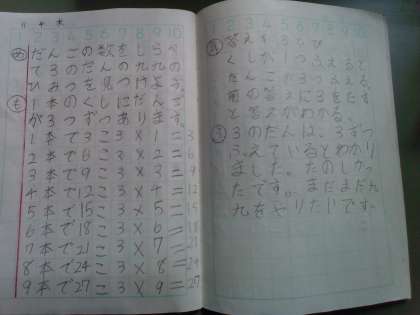 2 3 4 5 6 7 8 9 10
めだんごの数をしらべ
て3のだんの九九の
ひみつを見つけよう。
も1本のくしにだんご
が3つずつあります。
1本で3こ3×1=3
2本で6こ3×2=6
3本で9こ3×3=9
4本で12こ3×4=12
5本で15こ3×5=15
6本で18こ3×6=18
7本で21こ3×7=21
8本で24こ3×8=24
9本で27こ3×9=27
2 3 4 5 6 7 8 9 10
答え
くしが1つふえると
だんごが3つふえる。
前の答えに3をたす
と答えがわかる。
3のだんは、3ずつ
ふえているとわかり
ました。たのしか
ったです。まだまだ
九九をやりたいです。